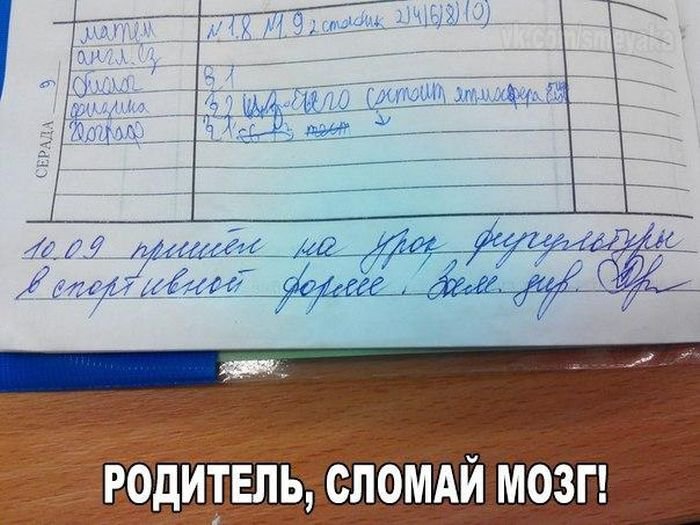 vk.com/smeyaka
матем №1.8 №1.9 2 столбик 2)4)6)8)10)
англ. яз
биолог §1
физика §2 из чего состоит атмосфера
географ §1
тест
СЕРАДА 9
10.09 пришёл на урок физкультуры
в спортивной форме. Зам. дир.
РОДИТЕЛЬ, СЛОМАЙ МОЗГ!